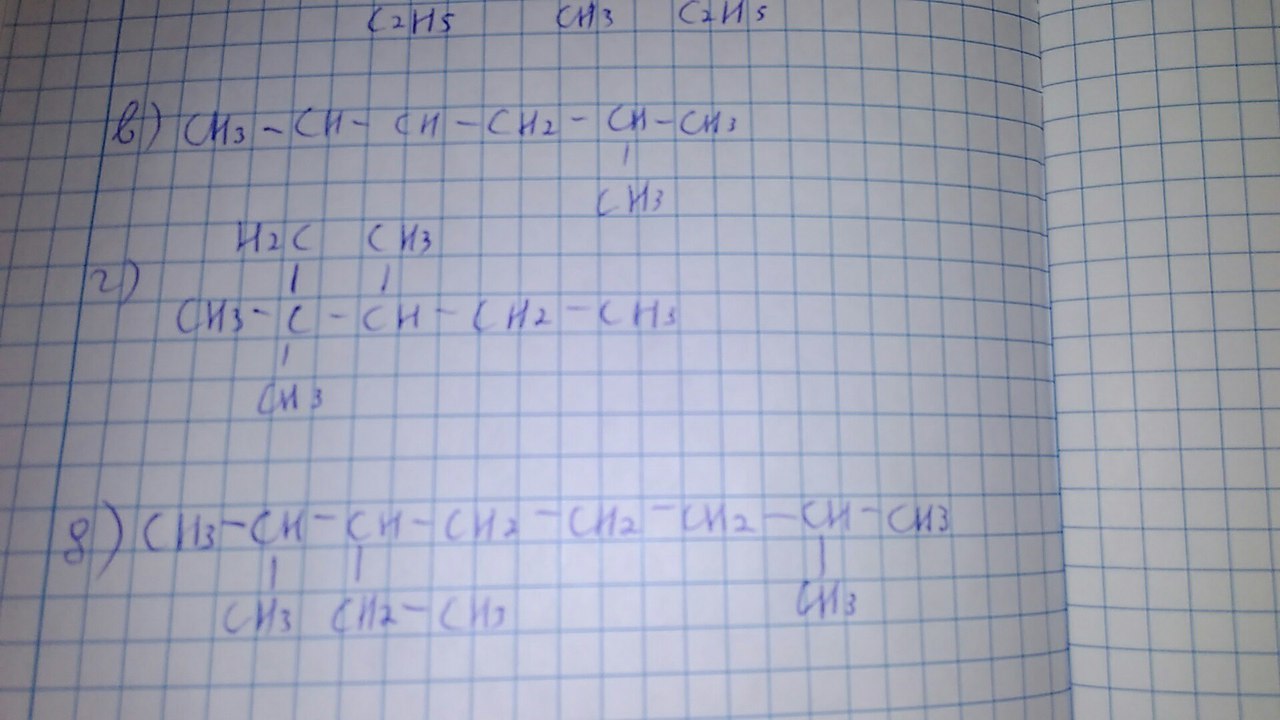 C2H5 CH3 C2H5
в) CH3 - CH - CH - CH2 - CH - CH3
CH3
H2C CH3
г)
CH3 - C - CH - CH2 - CH3
CH3
д) CH3 - CH - CH - CH2 - CH2 - CH2 - CH - CH3
CH3 CH2 - CH3 CH3